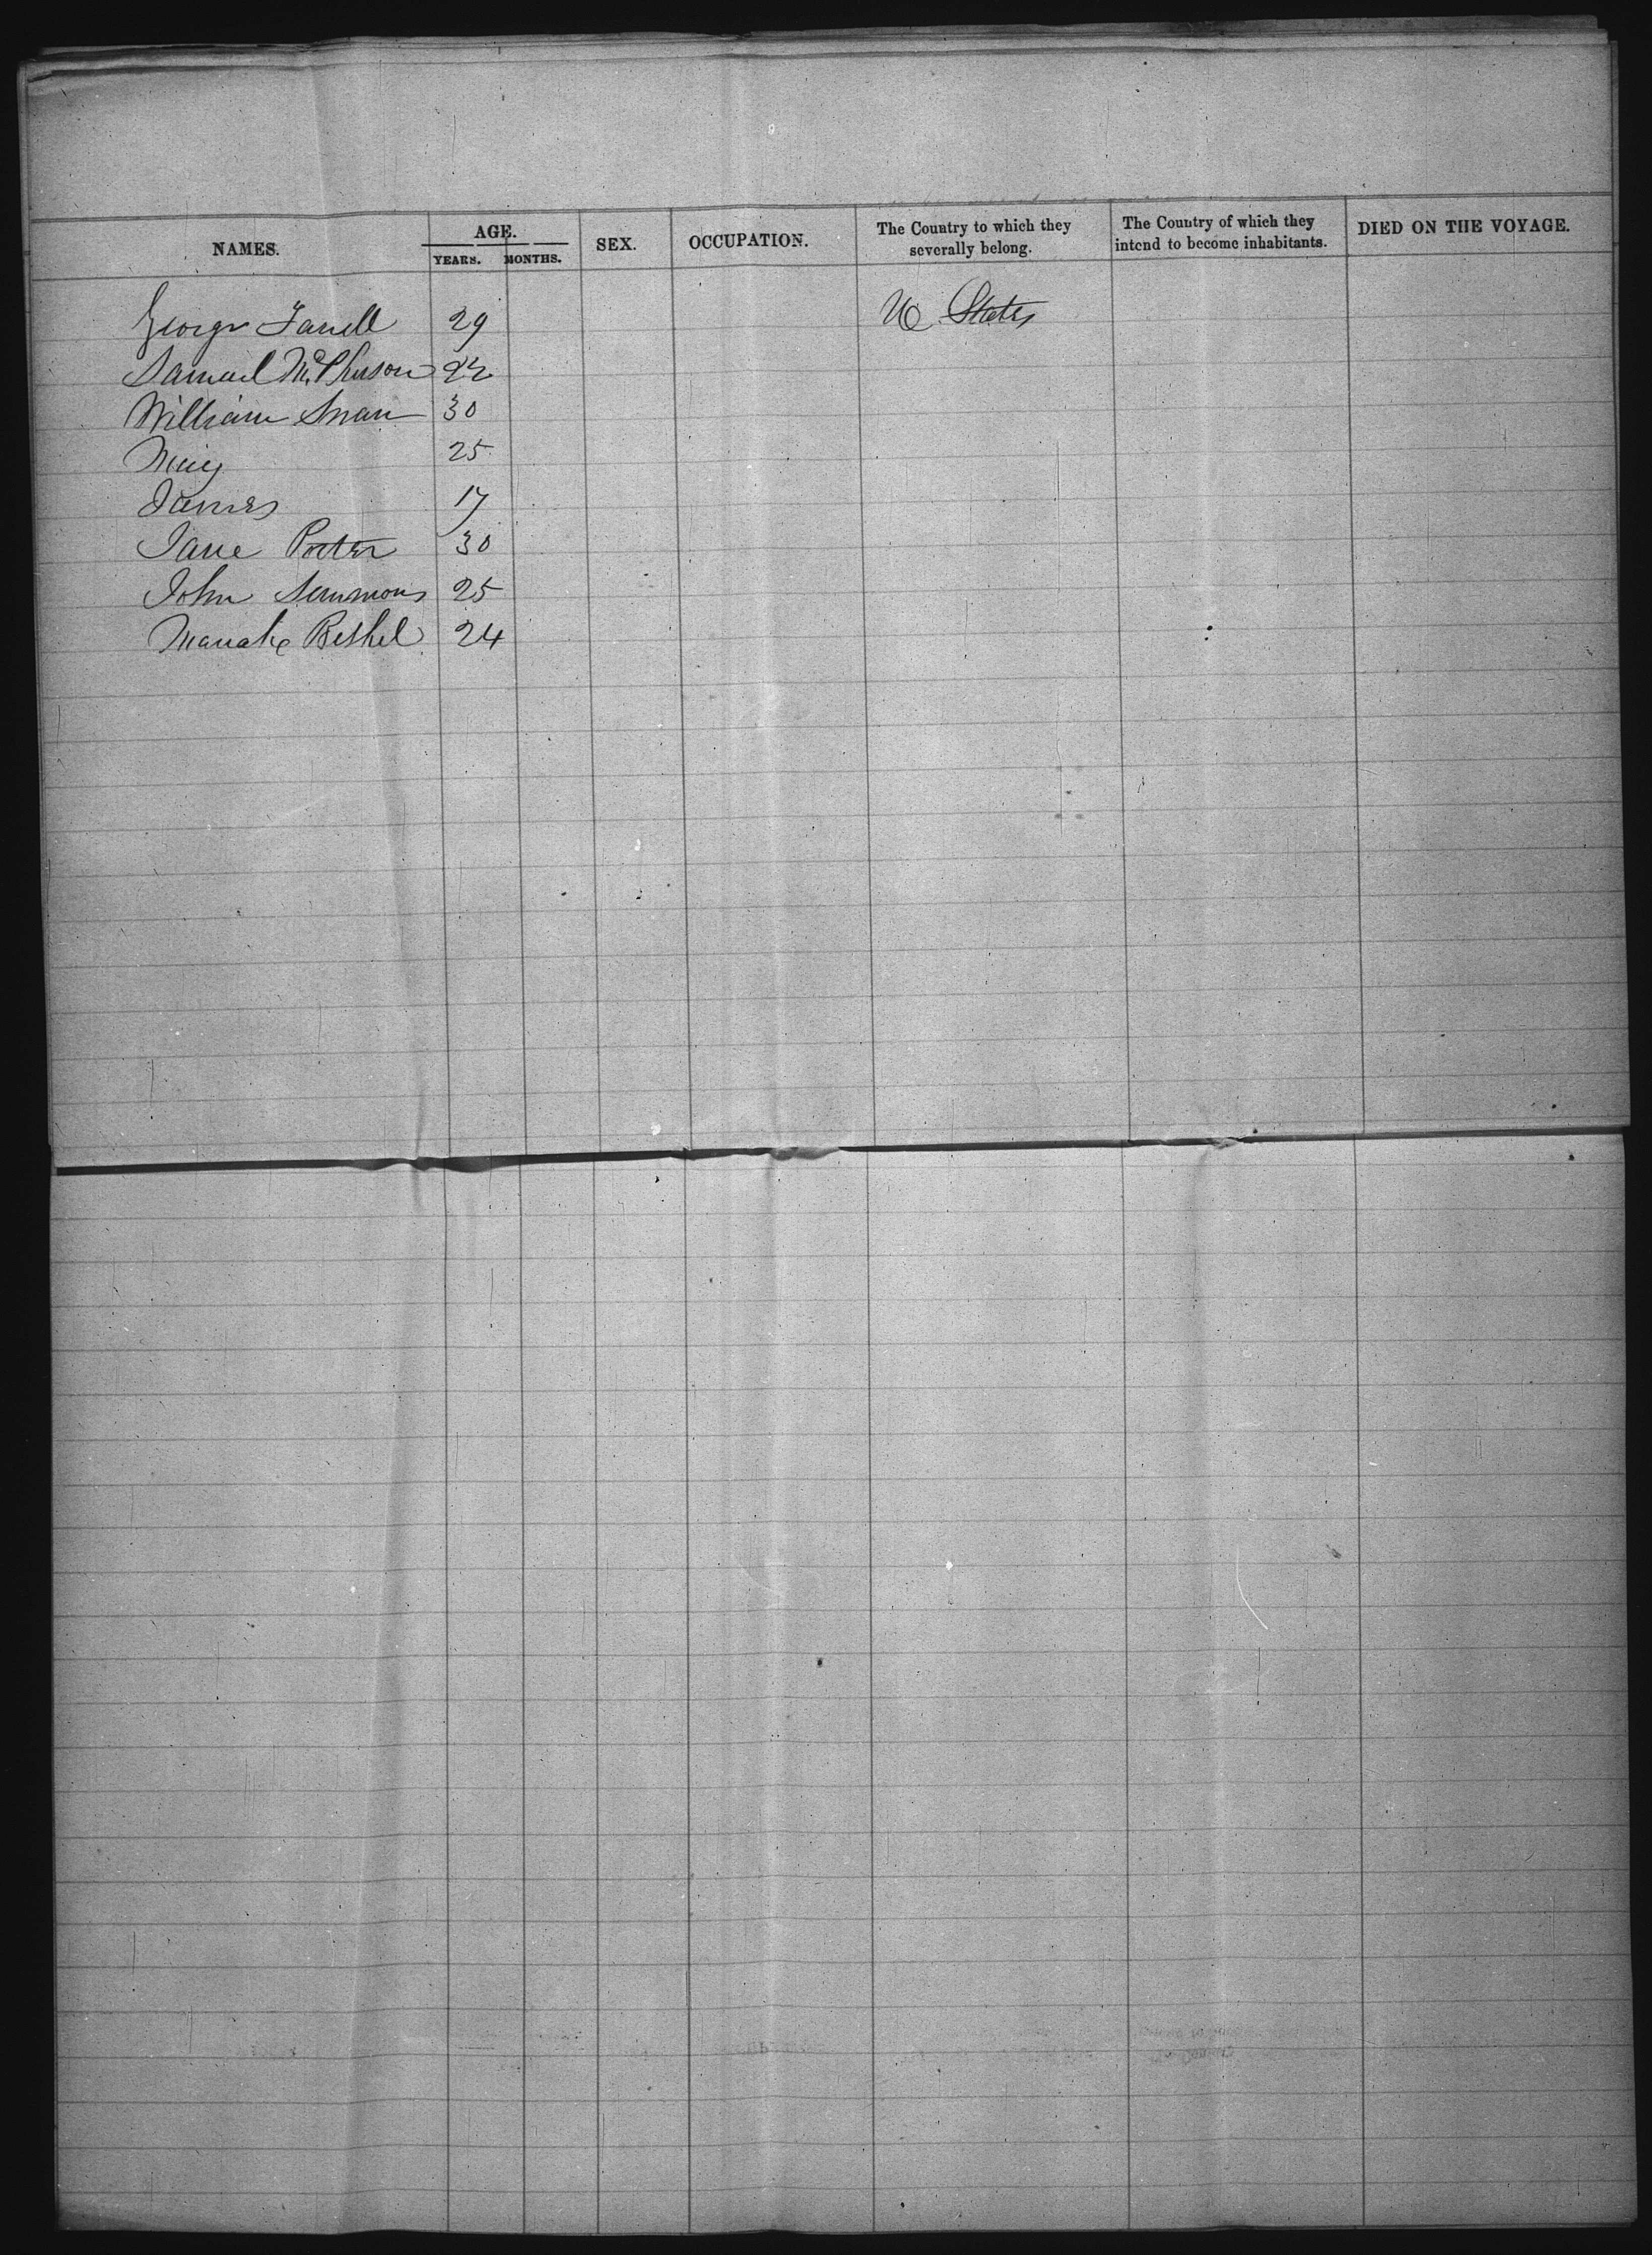 NAMES. AGE. SEX. OCCUPATION. The Country to which they severally belong. The Country of which they intend to become inhabitants. DIED ON THE VOYAGE.
YEARS. MONTHS.
George Farrell 29 U. States
Samuel McPherson 22
William Swan 30
Mary 25
James 17
Jane Porter 30
John Sammons 25
Bethel 24